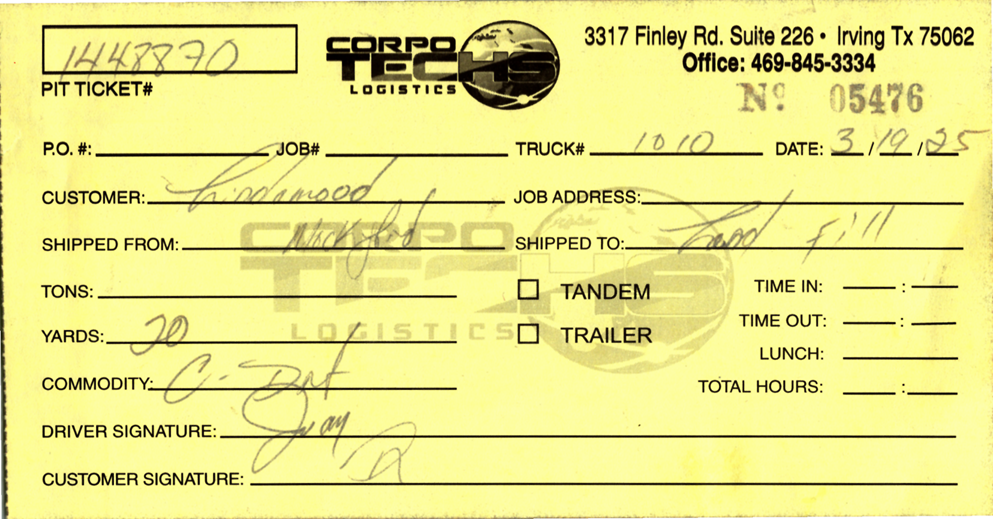 1448870
PIT TICKET#
CORPO
TECHS
LOGISTICS
3317 Finley Rd. Suite 226 • Irving Tx 75062
Office: 469-845-3334
Nº 05476
P.O. #: JOB# TRUCK# 1010 DATE: 3/19/25
CUSTOMER: Lindamood JOB ADDRESS:
SHIPPED FROM: SHIPPED TO: Land Fill
TONS: TANDEM TIME IN: :
YARDS: 20 TRAILER TIME OUT: :
LUNCH:
COMMODITY: C-Dirt TOTAL HOURS: :
DRIVER SIGNATURE: Juan R
CUSTOMER SIGNATURE: